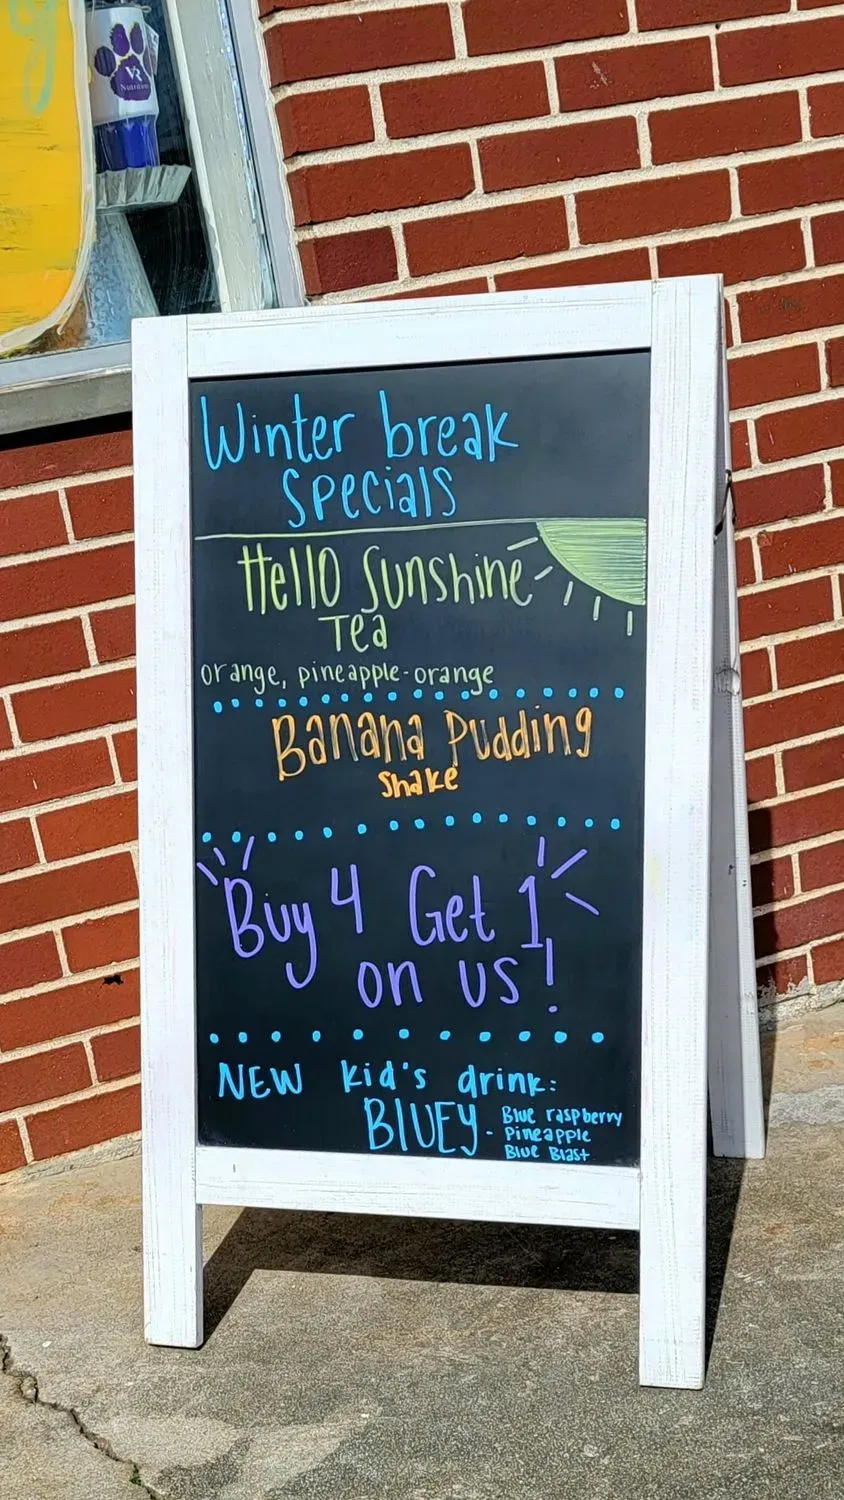 VR
Nutrition
Winter break
Specials
Hello Sunshine
Tea
orange, pineapple-orange
Banana Pudding
Shake
Buy 4 Get 1
on us!
NEW kid's drink:
BLUEY - Blue raspberry
Pineapple
Blue Blast